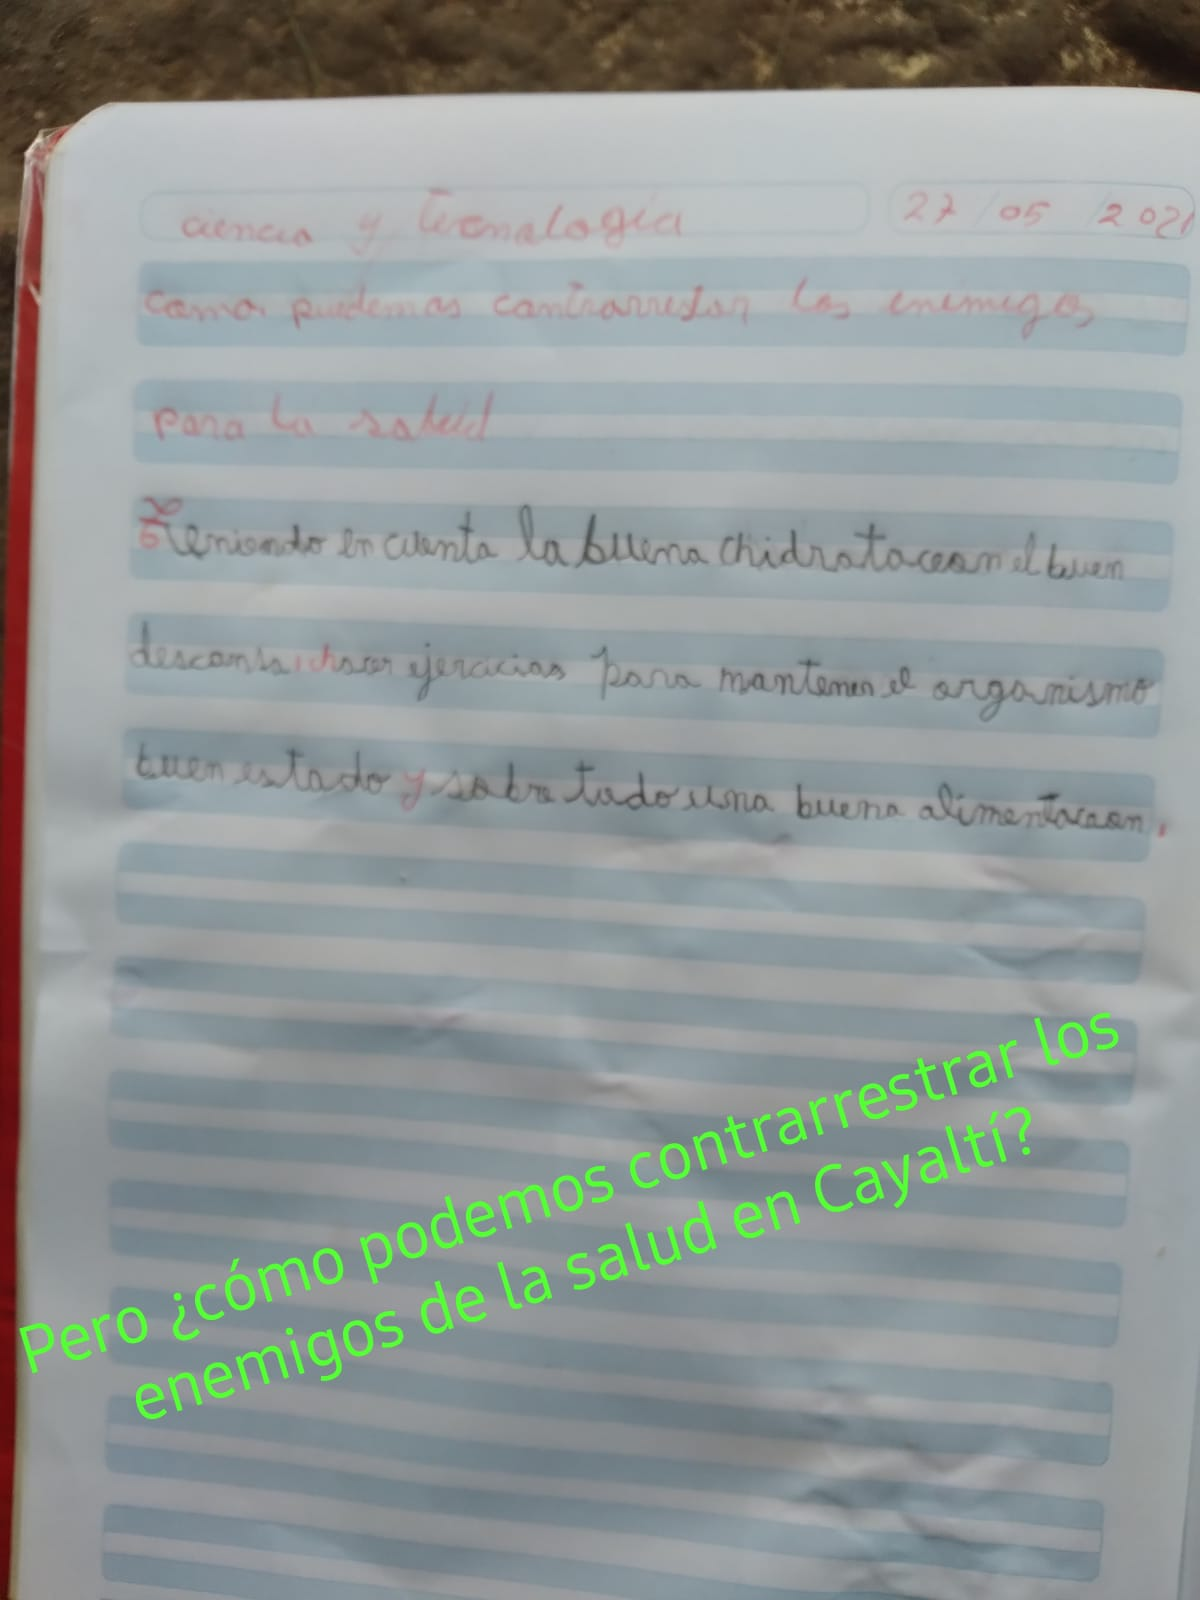 ciencia y Tecnología
27/05/2021
como puedemos contrarrestar los enemigos
para la salud
Teniendo en cuenta la buena chidratacion el buen
descanso, chacer ejercicios para mantener el organismo
buen estado y sobre todo una buena alimentacion.
Pero ¿cómo podemos contrarrestrar los
enemigos de la salud en Cayaltí?